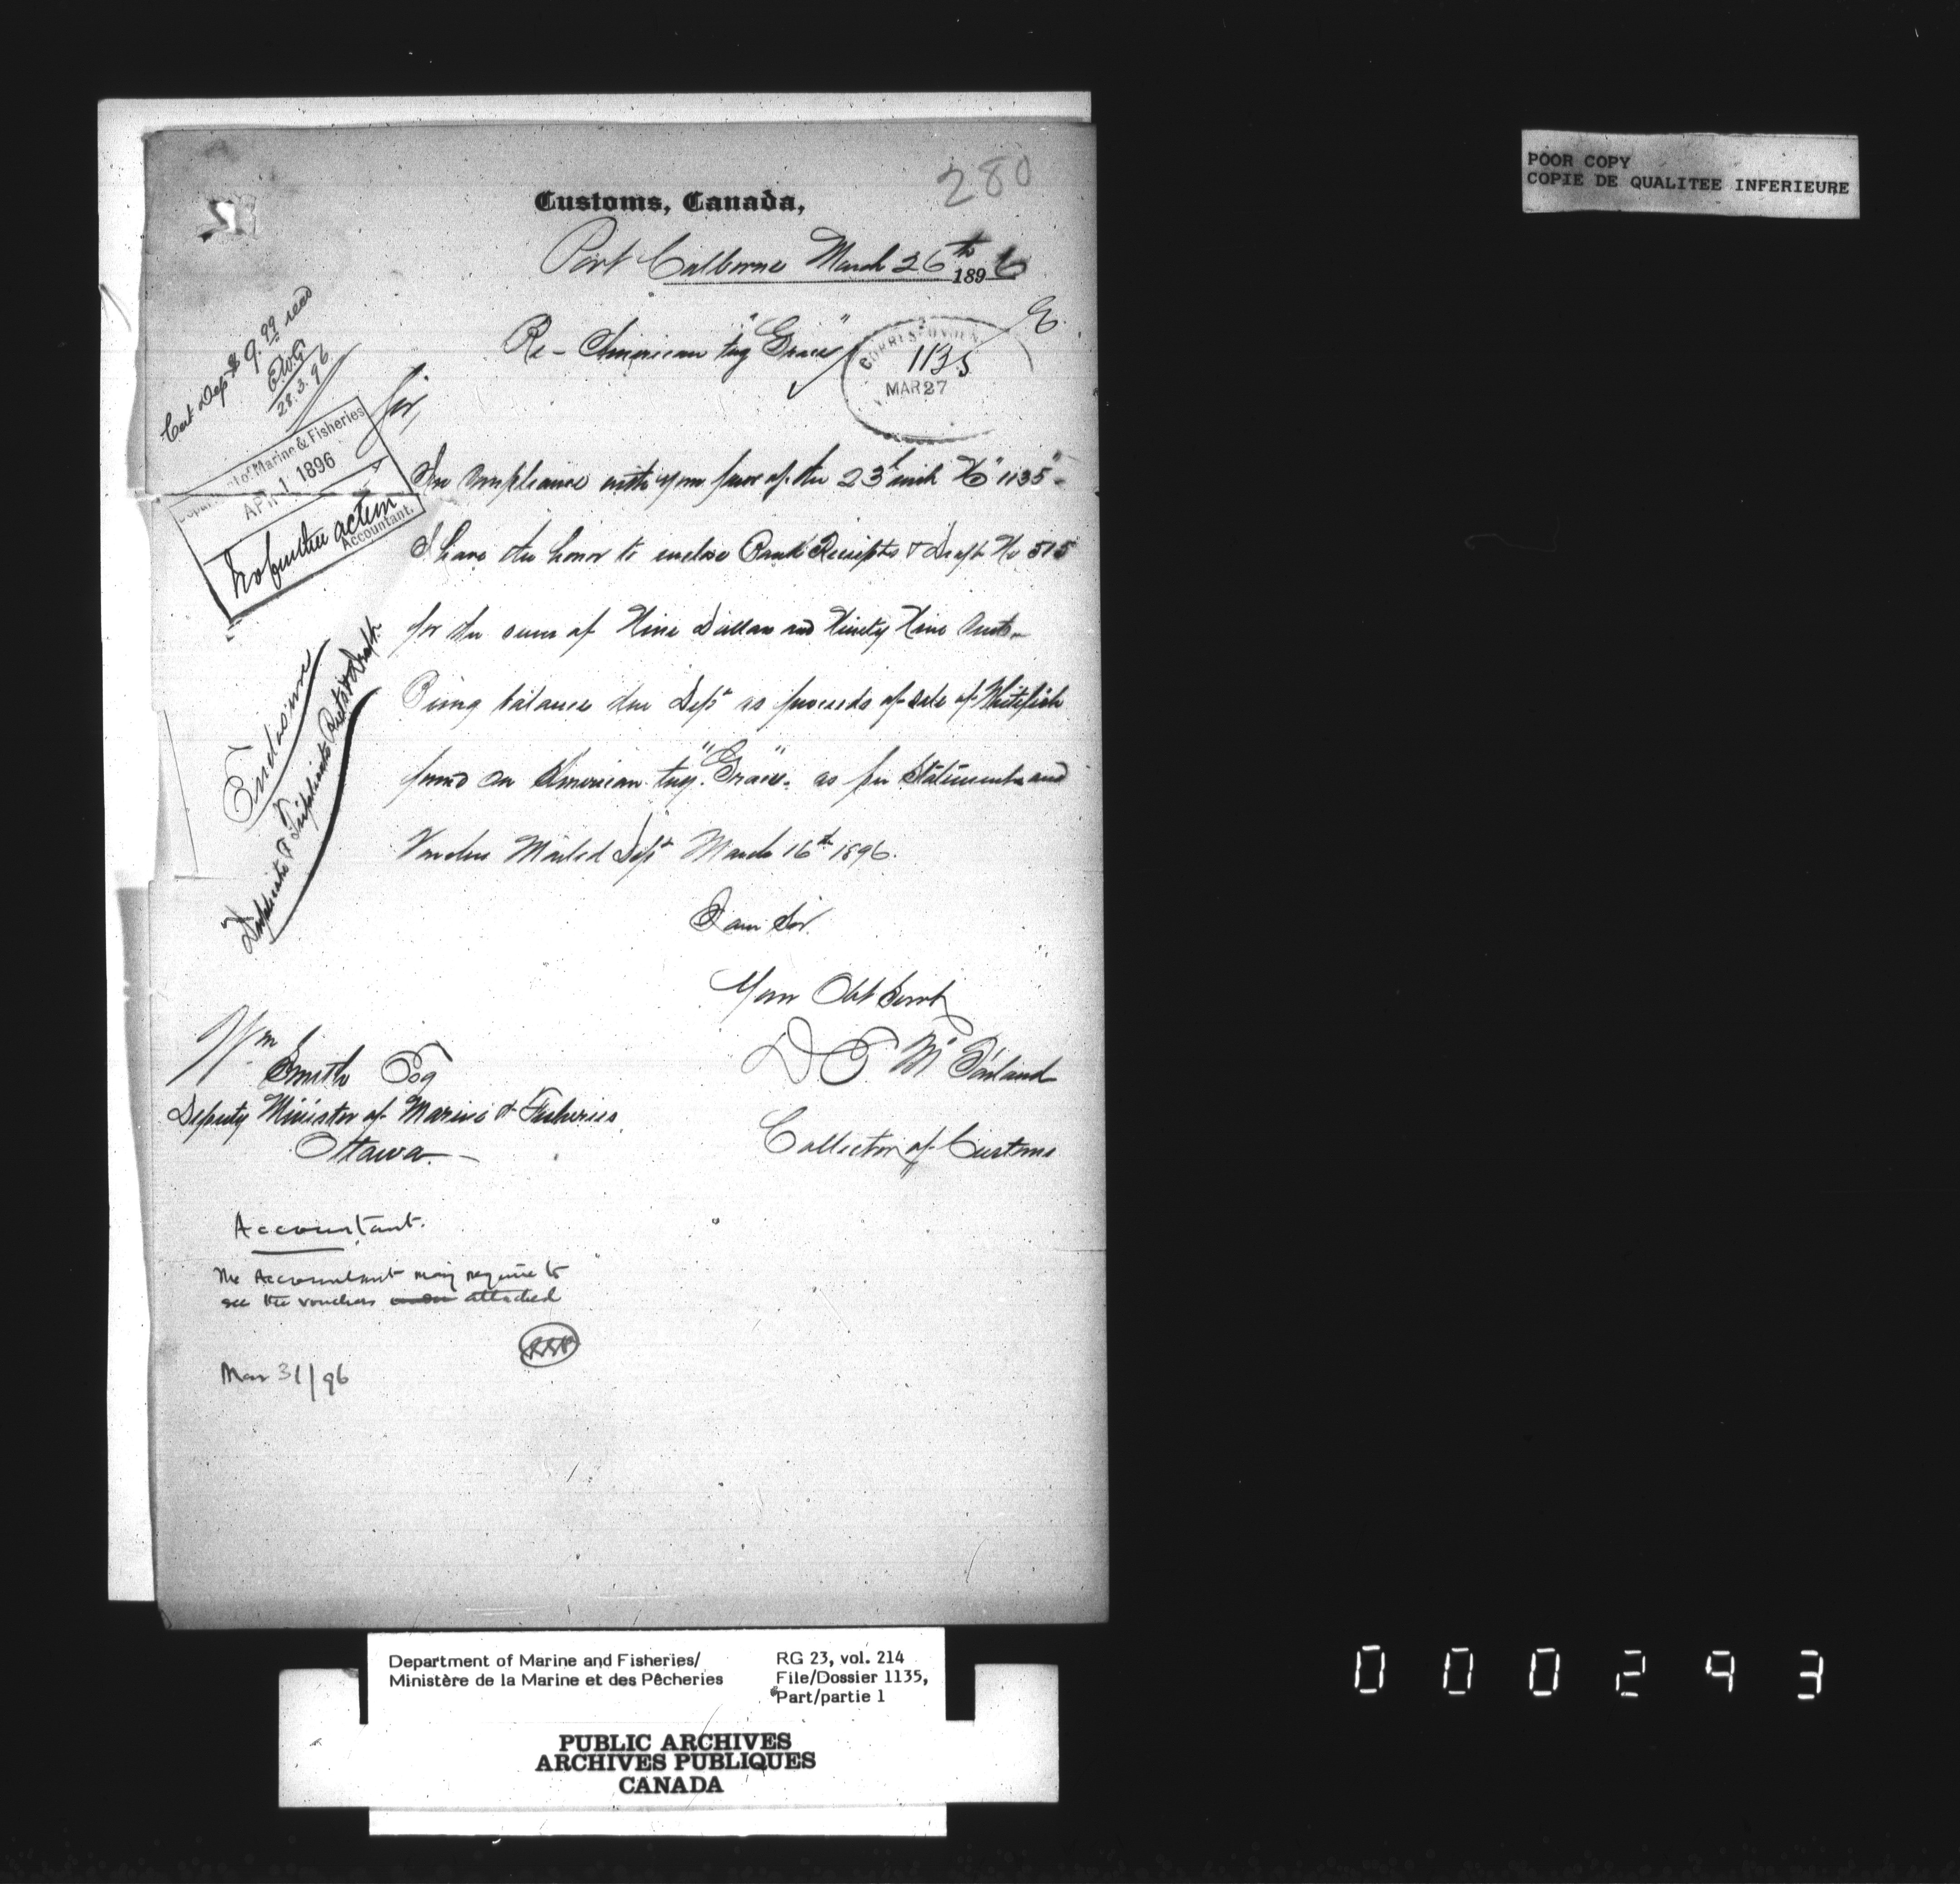 280
Customs, Canada,
Port Colborne March 26th 1896
Re - American tug "Grace"
CORRESPONDEN
1135
MAR 27
Cert Dep $9.99 read
E.W.G
28.3.96
Department of Marine & Fisheries
APR 1 1896
No further action
Accountant.
Sir,
In compliance with your favor of the 23d inst No "1135" -
I have the honor to enclose Bank Receipts & Draft No 515
for the sum of Nine Dollars and Ninety Nine Cents -
Being balance due Dept as proceeds of sale of Whitefish
found on American tug. "Grace". as per Statements and
Voucher Mailed Dept March 16th 1896.
Enclosure
Duplicate & Triplicate Rcts & Draft.
I am Sir
Your Obt Servt
D McFarland
Collector of Customs
Wm Smith Esq
Deputy Minister of Marine & Fisheries
Ottawa. -
Accountant.
The Accountant may require to
see the vouchers attached
Mar 31/96
POOR COPY
COPIE DE QUALITEE INFERIEURE
Department of Marine and Fisheries/
Ministère de la Marine et des Pêcheries
RG 23, vol. 214
File/Dossier 1135,
Part/partie 1
PUBLIC ARCHIVES
ARCHIVES PUBLIQUES
CANADA
000293